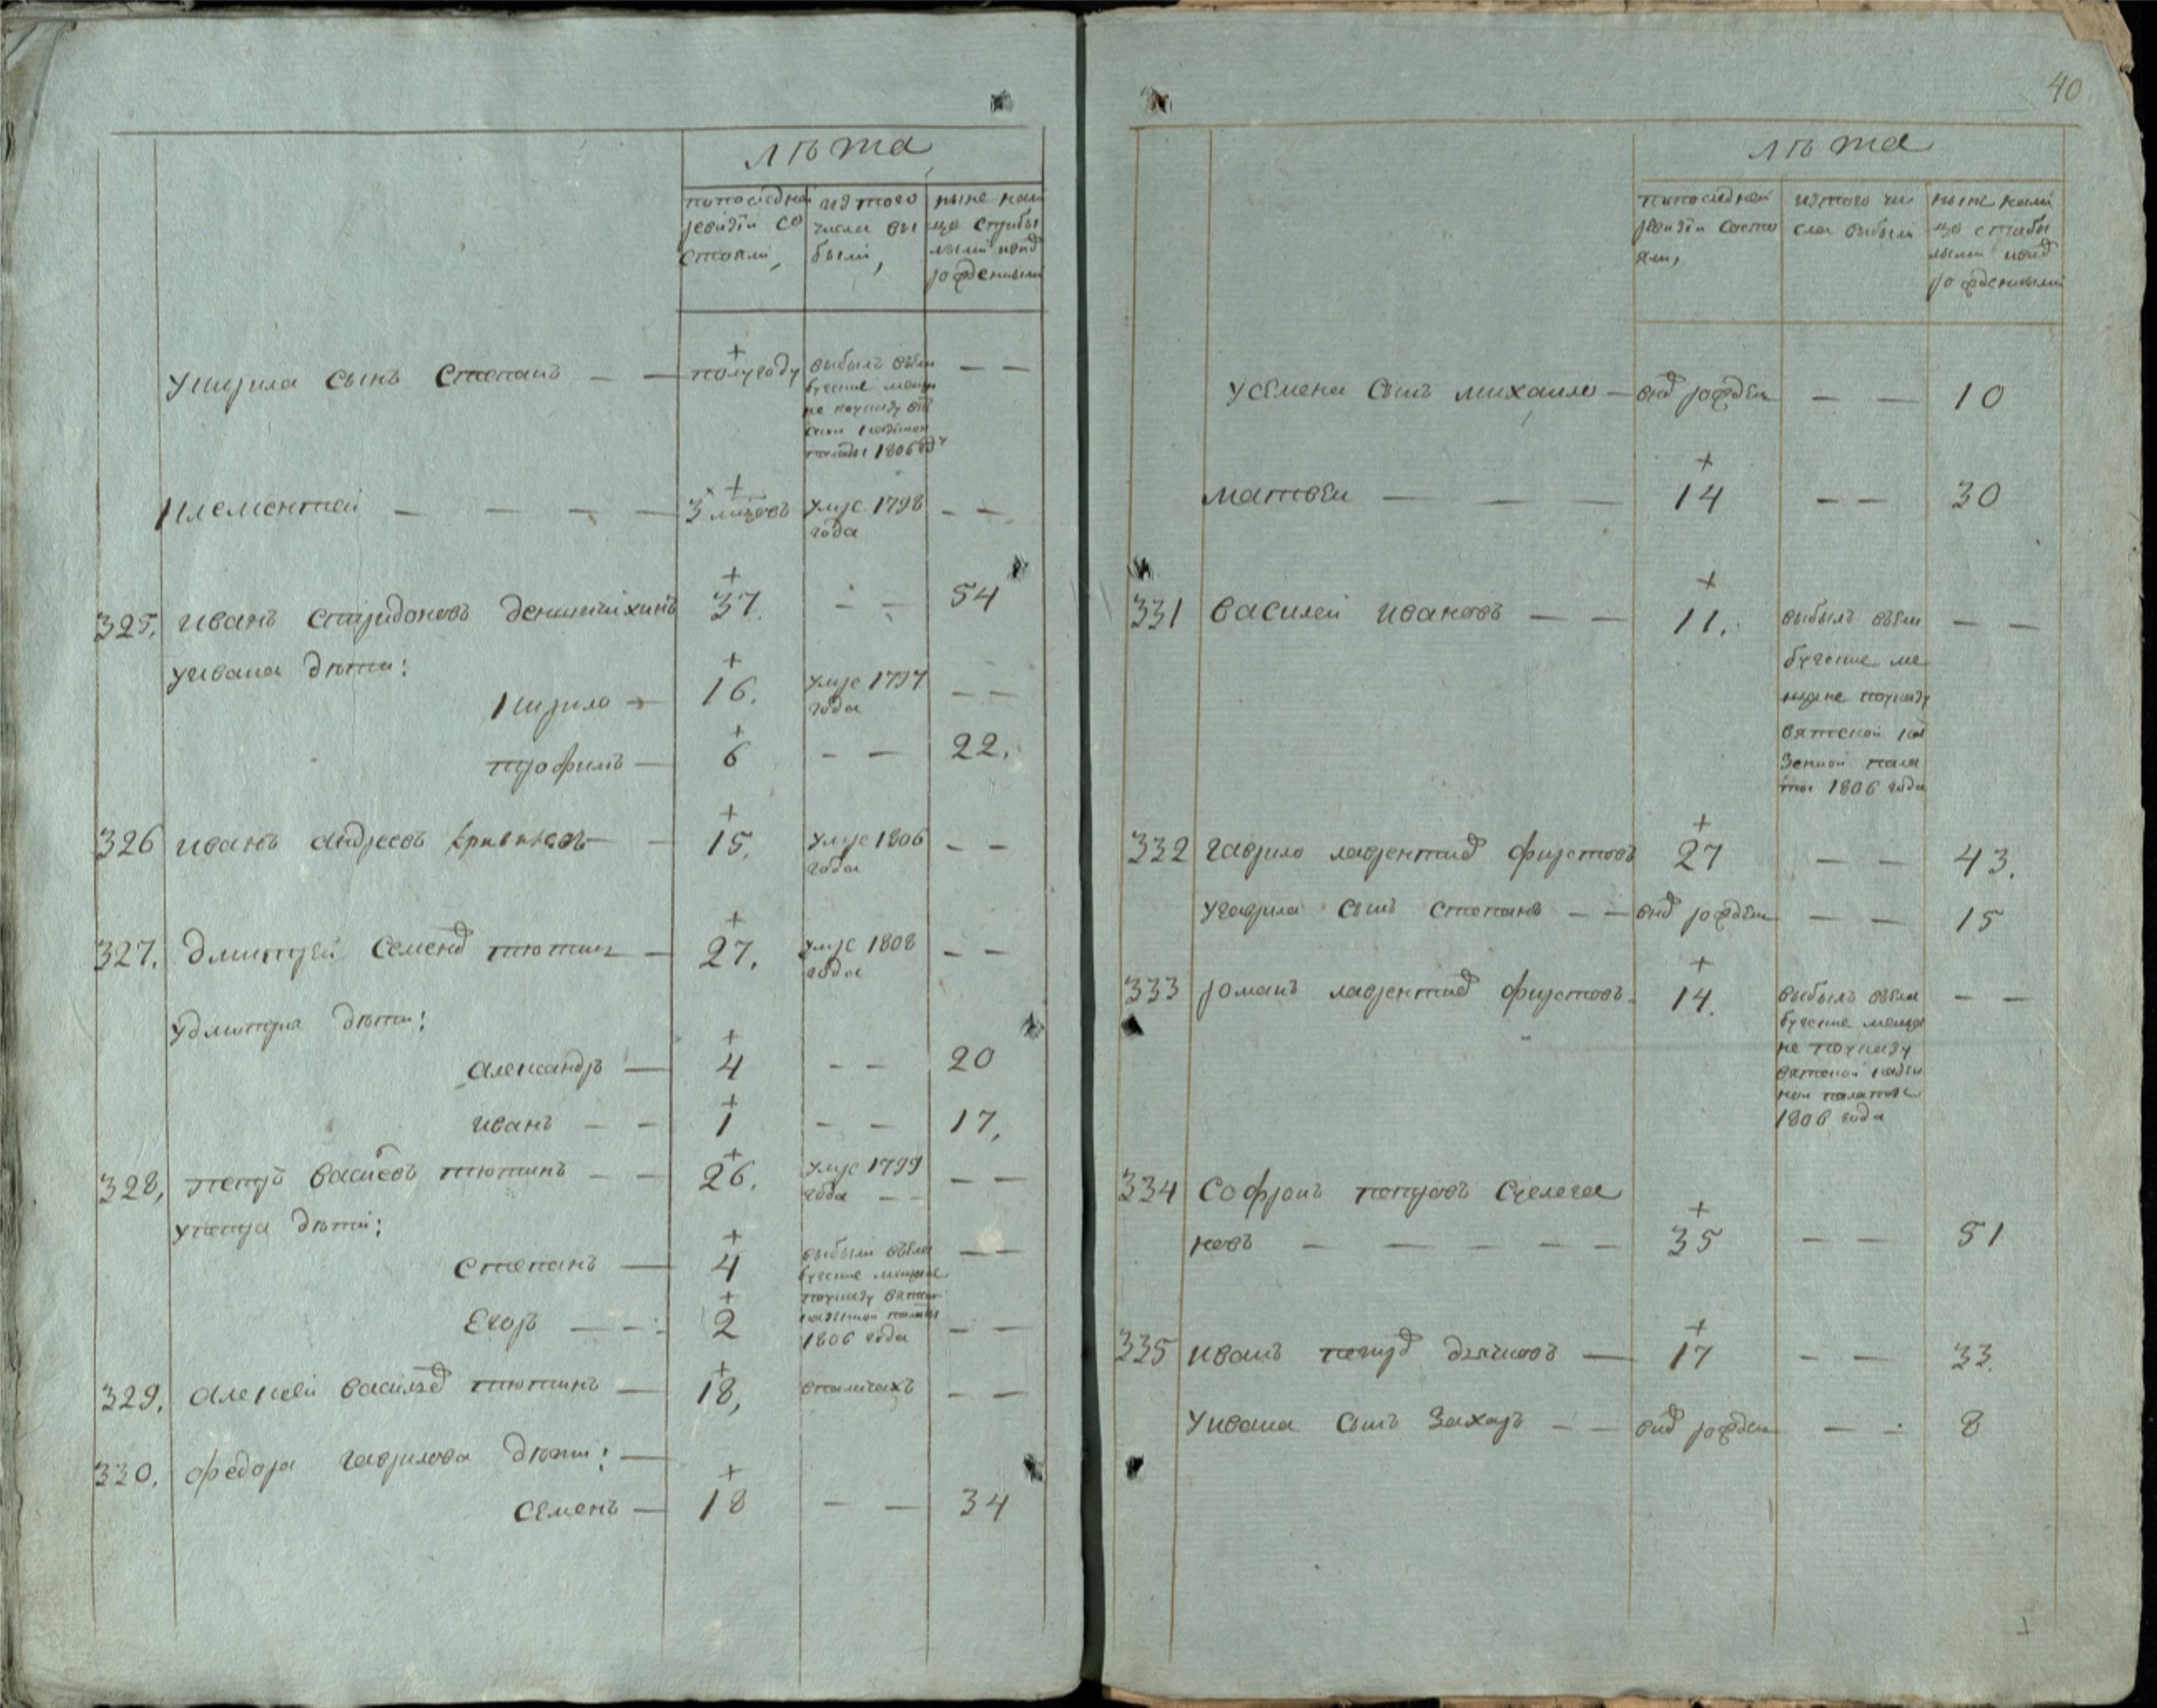 лѣта
попоследней
ревизіи со
стояли,
изтого
числа вы
были,
ныне нали
цо сприбы
лыми ипод
рожденными
укирила сынъ степанъ — — полугоду
выбылъ въели
бугские мещ
не поуказу вят
ской казенной
палаты 1806 году
— —
клементей — — — — 3 мѣцовъ
умре 1798 — —
года
325. иванъ спиридоновъ деншичихинъ 37. — — 54
уивана дѣти:
кирило — 16. умре 1797 — —
года
трофимъ — 6 — — 22.
326 иванъ андреевъ кривинковъ — — 15. умре 1806 — —
года
327. дмитрей семенов тютинъ — 27. умре 1808 — —
года
удмитрия дѣти:
александръ — 4 — — 20
иванъ — — 1 — — 17,
328, петръ василевъ тютинъ — — 26. умре 1799 — —
года — —
упетра дѣти:
степанъ — 4 выбыли въела — —
бугские мещане
поуказу вятской
казенной палаты
егоръ — — 2 1806 года — —
329. алексей васильев тютинъ — 18,
— —
330. федора гаврилова дѣти: —
семенъ — 18 — — 34
40
лѣта
попоследней
ревизіи состо
яли,
изтого чи
сла выбыли
ныне нали
цо сприбы
лыми ипод
рожденными
усемена сынъ михаило — внов рожден — — 10
матвеи — — — 14 — — 30
331 василей ивановъ — — 11. выбылъ въели — —
бугские ме
щане поуказу
вятской ка
зенной пала
ты 1806 года
332 гаврило лаврентиев фирстовъ 27 — — 43.
угаврила сынъ степанъ — — внов рожден — — 15
333 романъ лаврентиев фирстовъ — 14. выбылъ въела — —
бугские меща
не поуказу
вятской казен
ной палаты
1806 года
334 софронъ петровъ счелега
новъ — — — — — 35 — — 51
335 иванъ петров дьячковъ — 17 — — 33.
уивана сынъ захаръ — — внов рожден — — 8